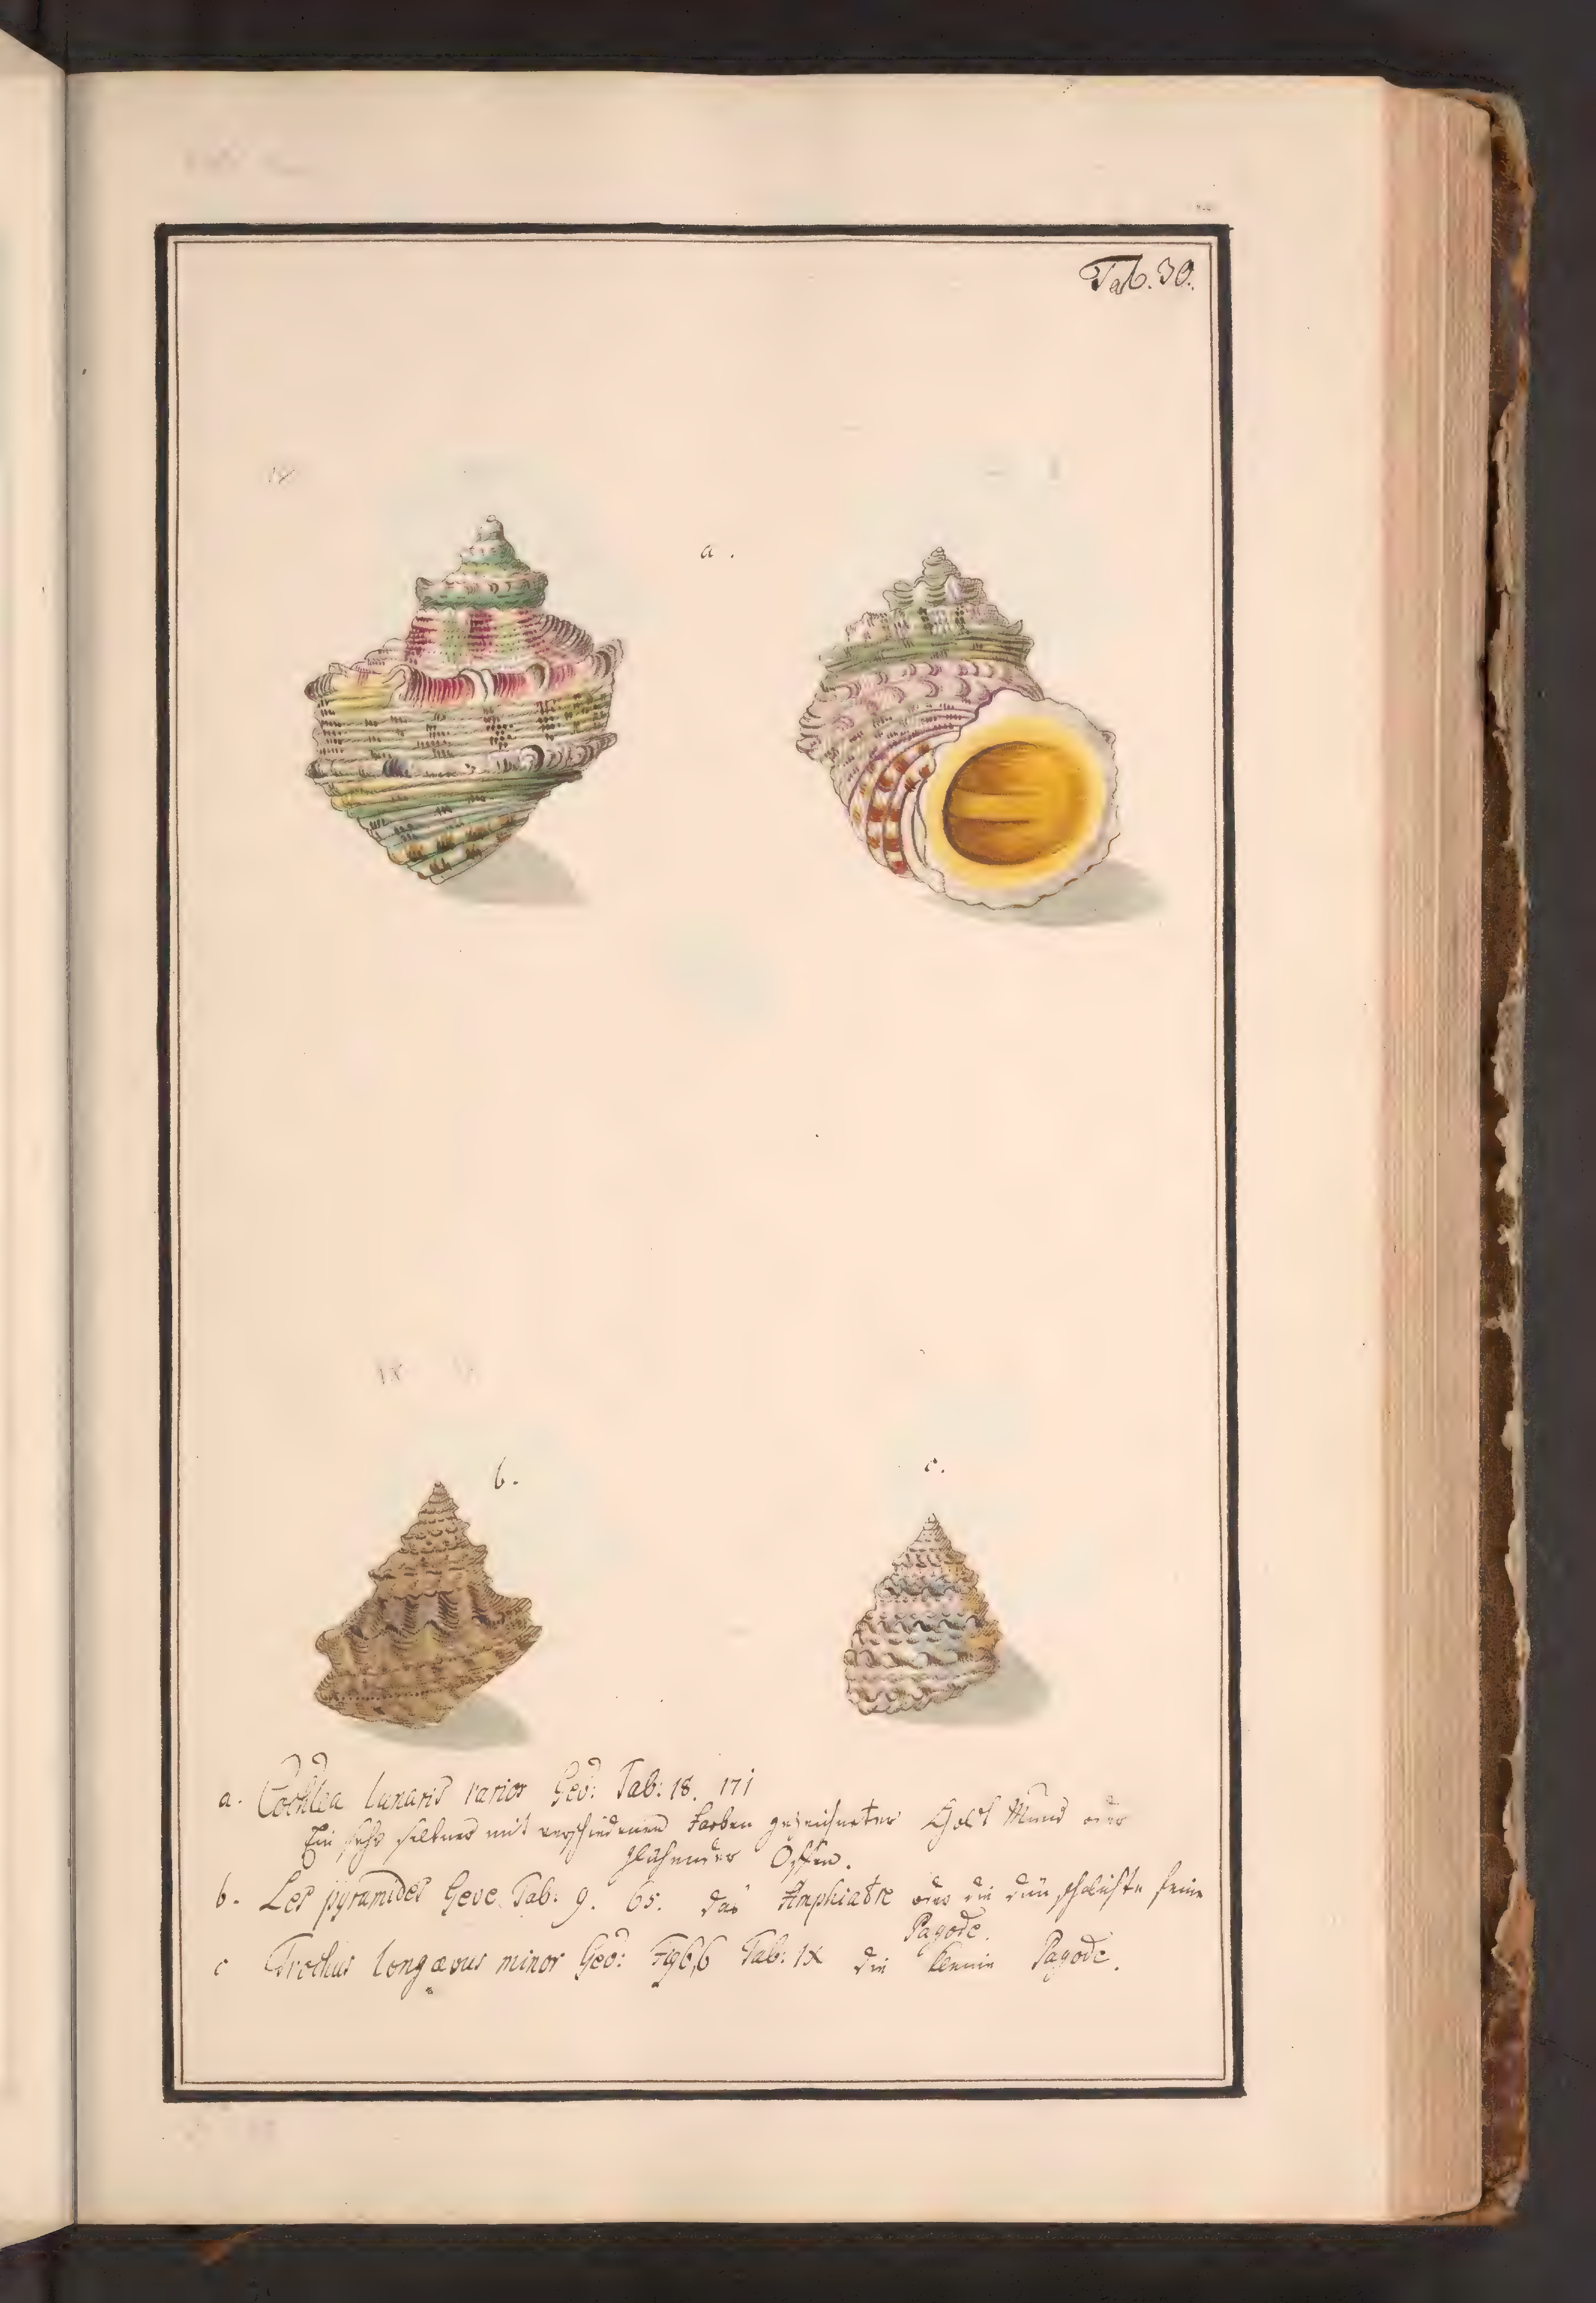 Tab. 30.
a.
b.
c.
a. Cochlea lunaris varior Gev: Tab: 18. 171
Ein sehr seltner mit verschiedenen Farben gezeichneter Gold Mund oder
glühender Offen.
b. Les pyramides Geve. Tab: 9. 65. das Amphiatre oder die dün schalichte feine
Pagode.
c Trochus longævus minor Gev: Tab: IX die Pagode.